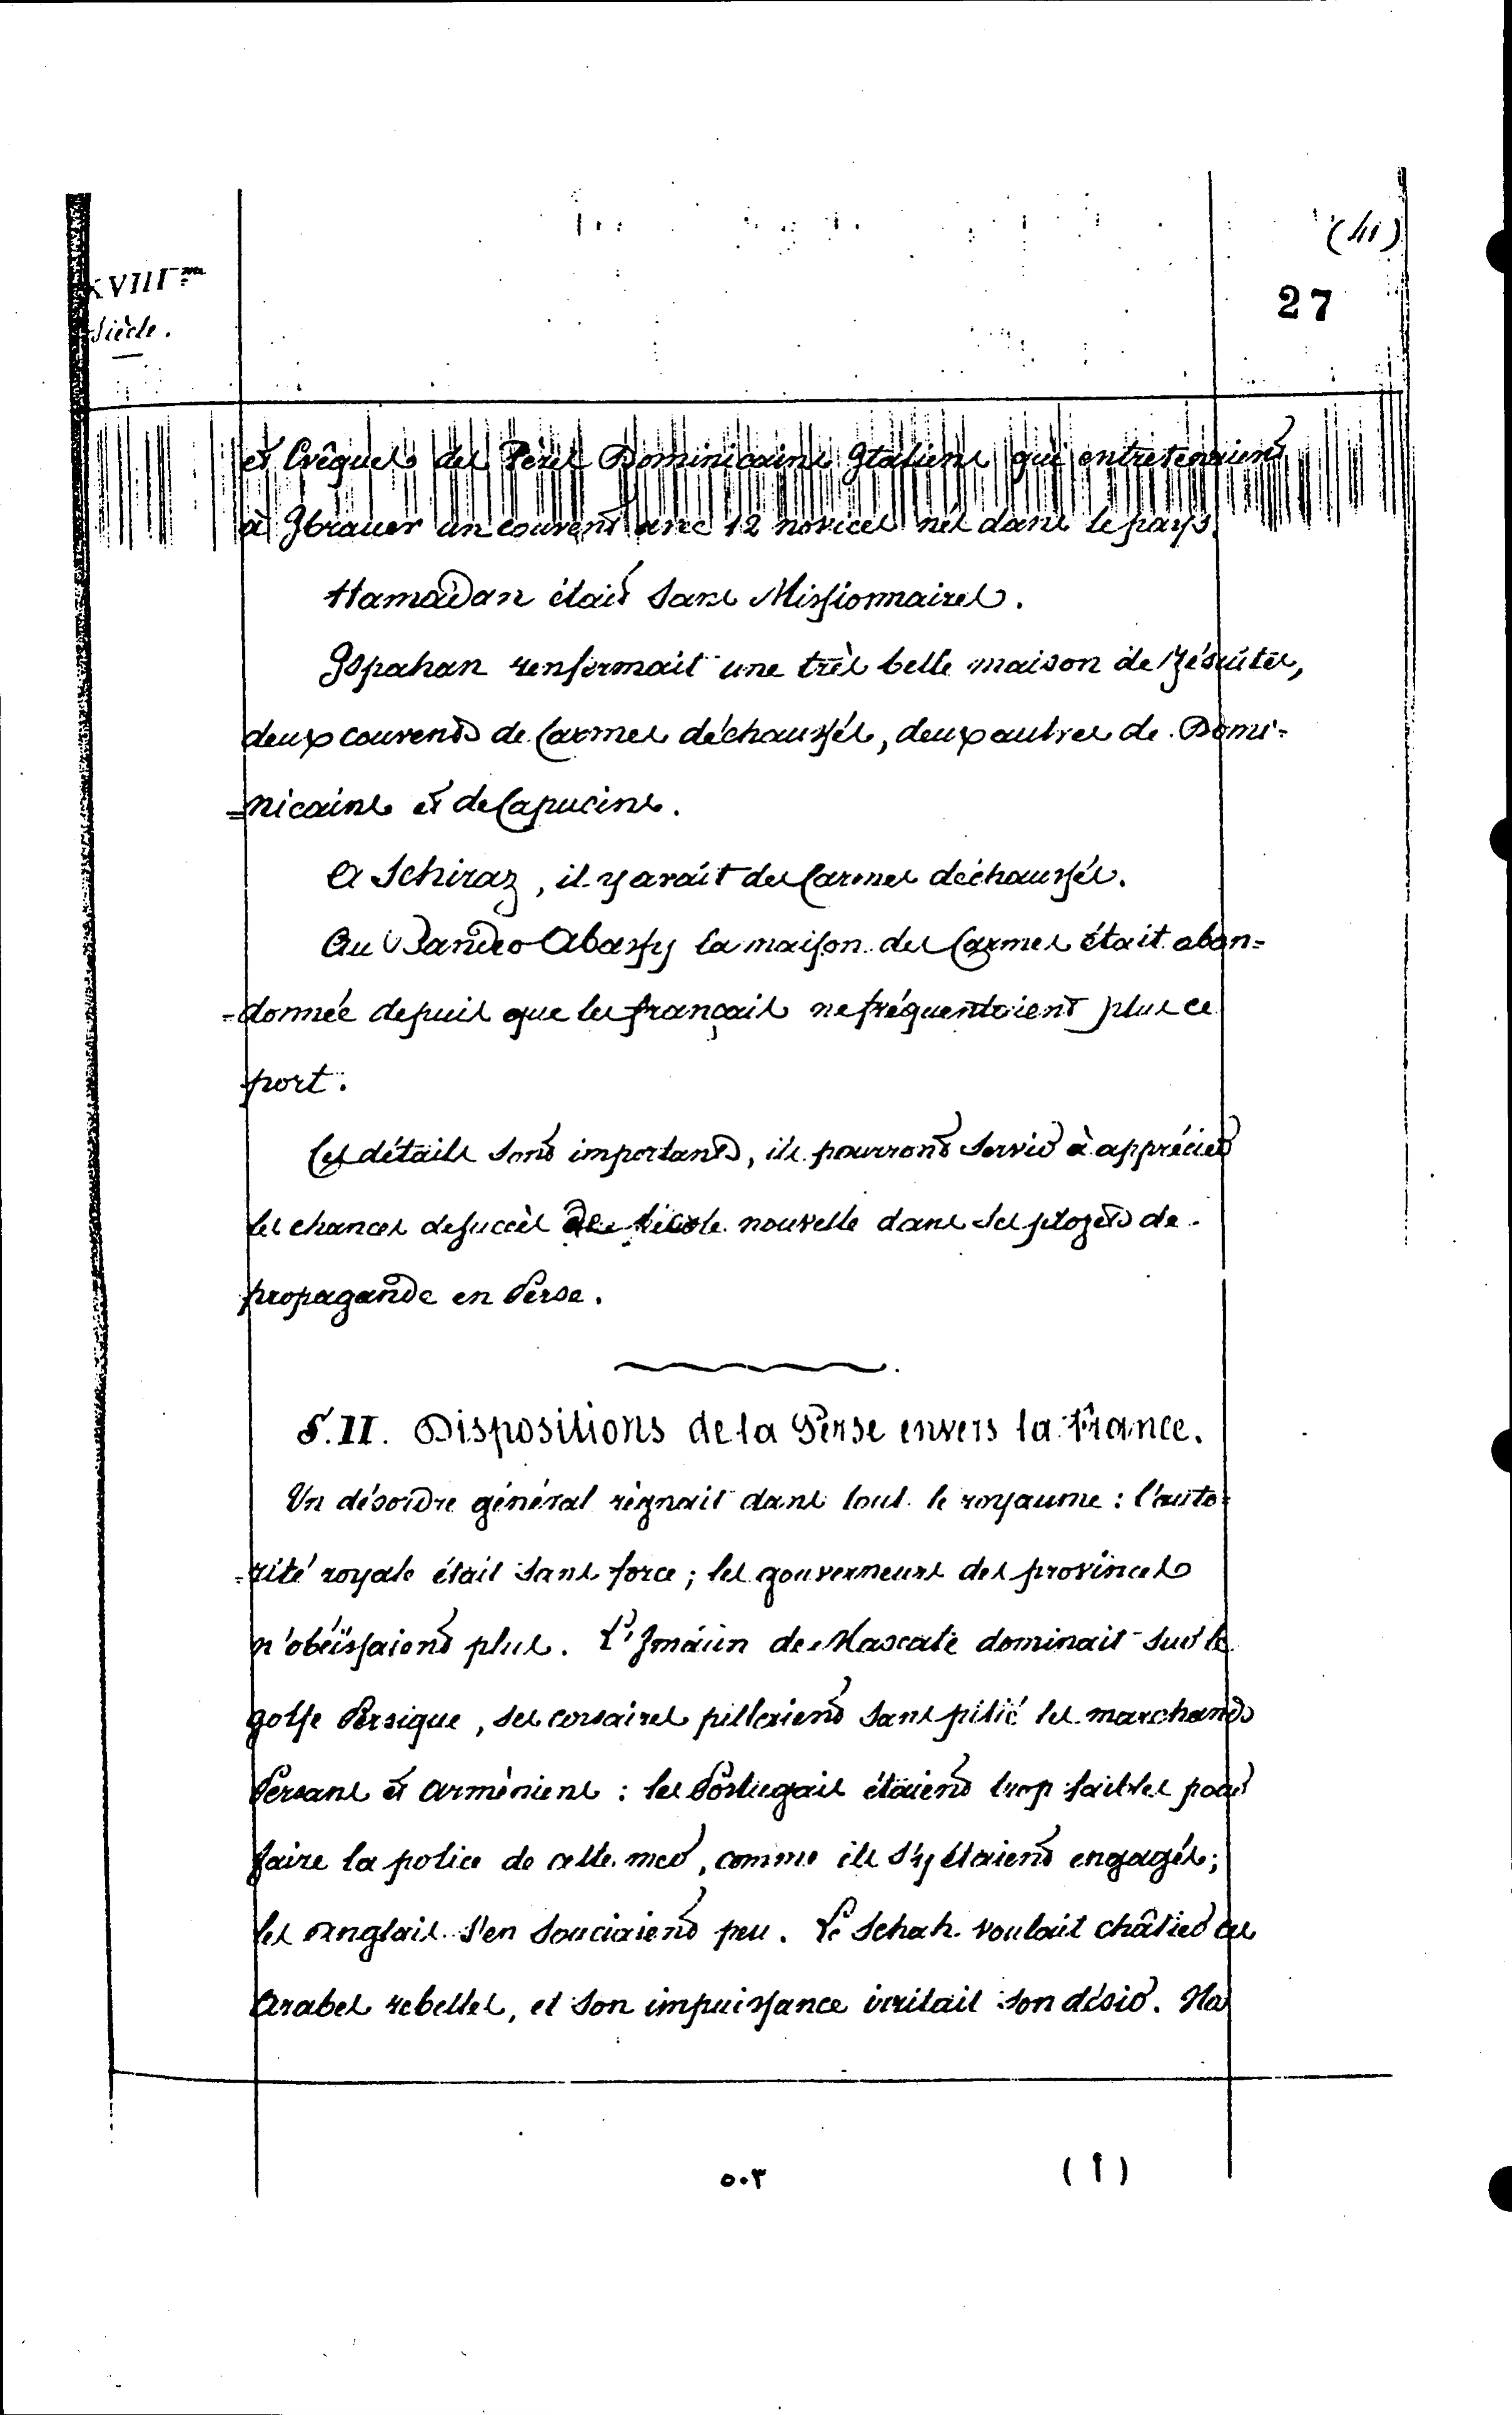 (41)
27
XVIIIme
Siècle.
et Evêques des Pères Dominicains Italiens qui entretenaient
à Abrauer un couvent avec 12 novices nés dans le pays.
Hamadan était sans Missionnaires.
Ispahan renfermait une très belle maison de Jésuites,
deux couvents de Carmes déchaussés, deux autres de Domi=
=nicains et de Capucins.
A Schiraz, il y avait des Carmes déchaussés.
Au Bander-Abassy la maison des Carmes était aban=
=donnée depuis que les français ne fréquentaient plus ce
port.
Ces détails sont importants, ils pourront servir à apprécier
les chances de succès de l'école nouvelle dans ses projets de
propagande en Perse.
§. II. Dispositions de la Perse envers la France.
Un désordre général régnait dans tout le royaume : l'auto=
=rité royale était sans force ; les gouverneurs des provinces
n'obéïssaient plus. L'Imâun de Mascate dominait sur le
golfe Persique, ses corsaires pillaient sans pitié les marchands
Persans et Arméniens : les Portugais étaient trop faibles pour
faire la police de cette mer, comme ils s'y étaient engagés ;
les Anglais s'en souciaient peu. Le Schah voulait châtier ces
Arabes rebelles, et son impuissance irritait son désir. Ha
٥٠٣
(٢)